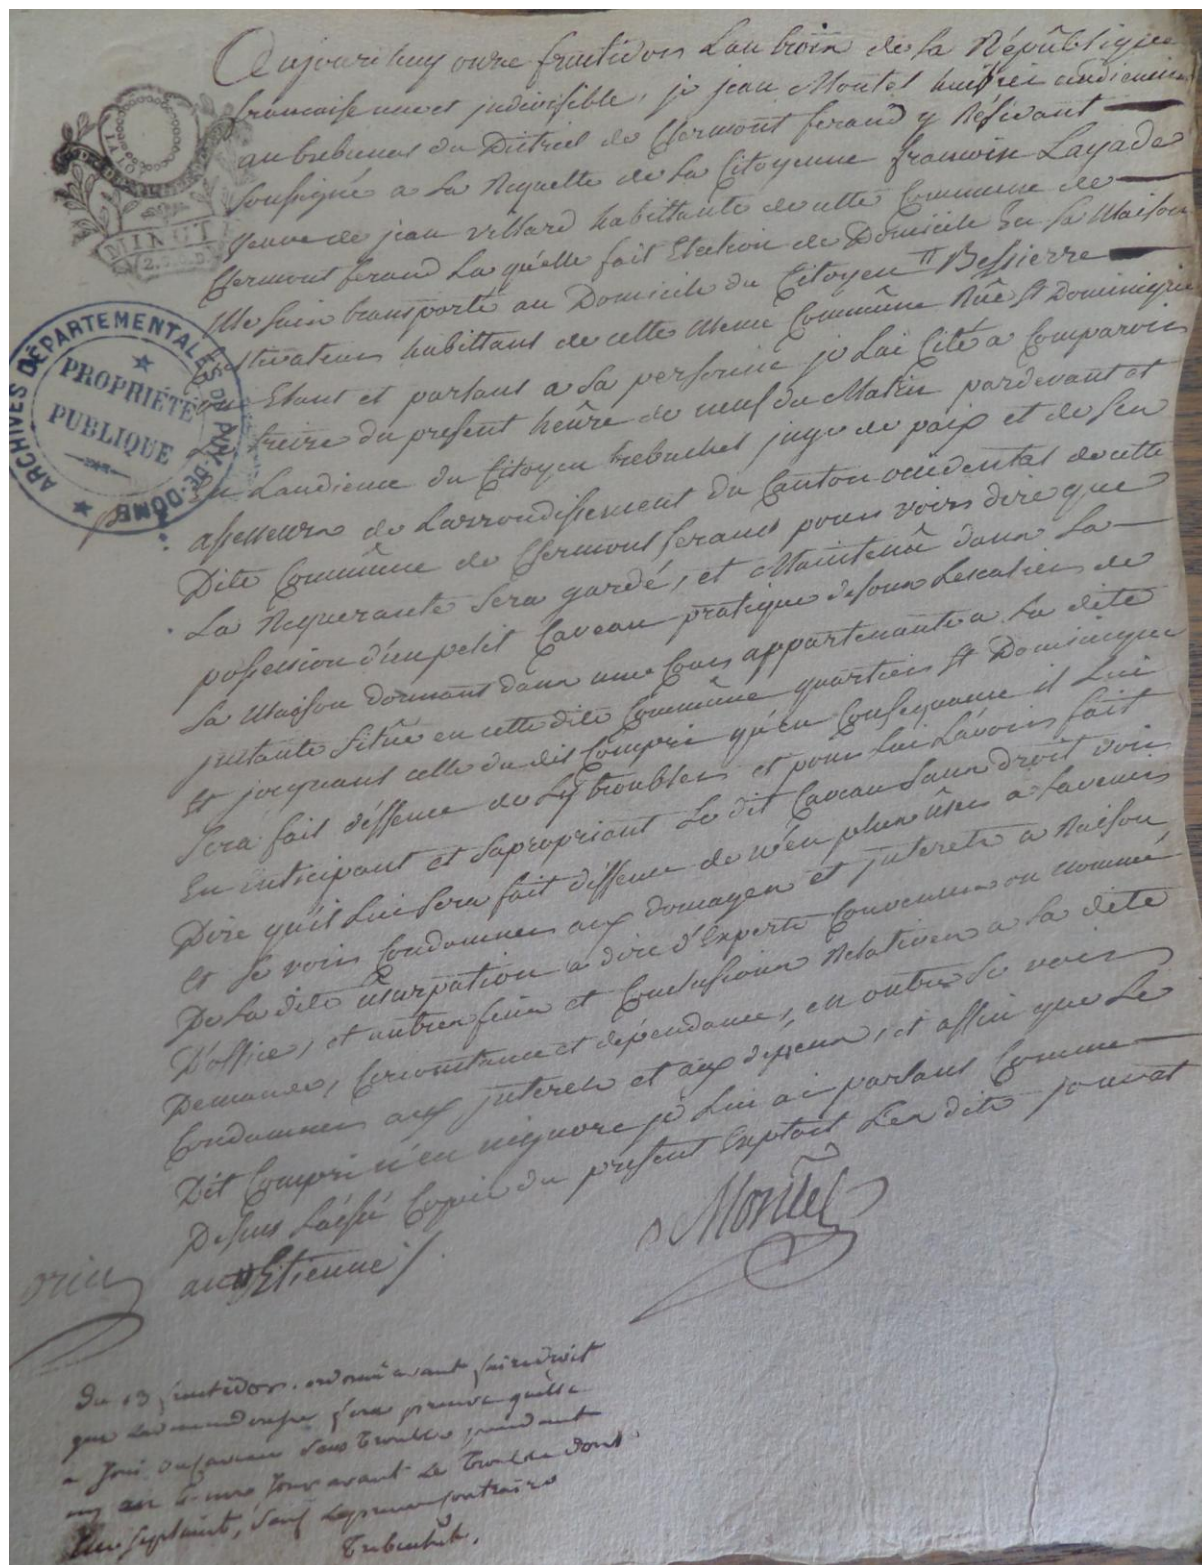 Aujourd'huy onze fructidor Lan trois de la République
francaise une et indivisible, je jean Montel huissier audiencier
au tribunal du District de Clermont ferand y Résidant
soussigné a la Requette de la Citoyenne francoise Layade
veuve de jean villard habittante de cette Commune de
Clermont ferand La quelle fait Election de Domicile En sa Maison
Me suis transporté au Domicile du Citoyen Bessierre
Cultivateur habittant de cette meme Commûne Rûe St Dominique
ou Etant et parlant a sa personne je Lai Cité a Comparoir
Le treize du present heûre de neuf du Matin pardevant et
En Laudience du Citoyen trebuchet juge de paix et de ses
assesseurs de Larrondissement du Canton occidental de cette
Dite Commûne de Clermont ferand pour voir dire que
La Requerante sera gardé, et Maintenû dans La
possession d'un petit Caveau pratiqué desous Lescalier de
sa Maison dormant dans une Cour appartenante a la dite
justante sitûé en cette dite Commûne quartier St Dominique
Et joignant celle du dit Compri qu'en Consequance il Lui
sera fait déffence de Ly troubler et pour Lui Lavoir fait
En enticipant et sapropriant Le dit Caveau sans droit voir
Dire qu'il Lui sera fait déffence de n'en plus ûser a Lavenir
Et se voir Condamner aux domages et interets a Raison
De La dite ûsurpation a dire d'Experts Convenus ou nommé
D'office, et autres fins et Conclusions Relatives a la dite
Demande, Circonstance et dépendance, en outre se voir
Condamner aux interets et aux depens, et affin que Le
Dit Compri n'en ignore je Lui ai parlant Comme
Desus Laissé Copie du présent Exploit Les dits jour et
an Etienne
Montel
du 13 fructidor. ordonné avant faire droit
que la demanderesse fera preuve quelle
a joui du caveau sans trouble pendant
un an et un jour avant le trouble dont
elle se plaint, sauf la preuve contraire
Trebuchet.
ARCHIVES DÉPARTEMENTALES DU PUY-DE-DÔME
PROPRIÉTÉ
PUBLIQUE
MINUT